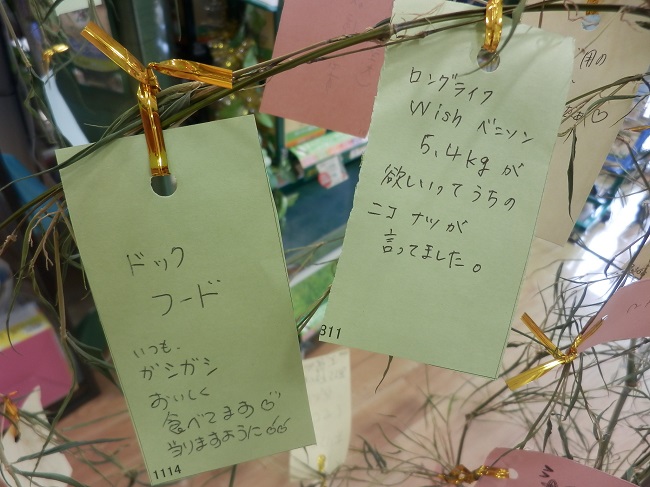 ドック
フード
いつも、
ガシガシ
おいしく
食べてます
当りますように
1114
ロングライフ
Wish ベニソン
5.4kg が
欲しいってうちの
ニコ ナツが
言ってました。
311
用の